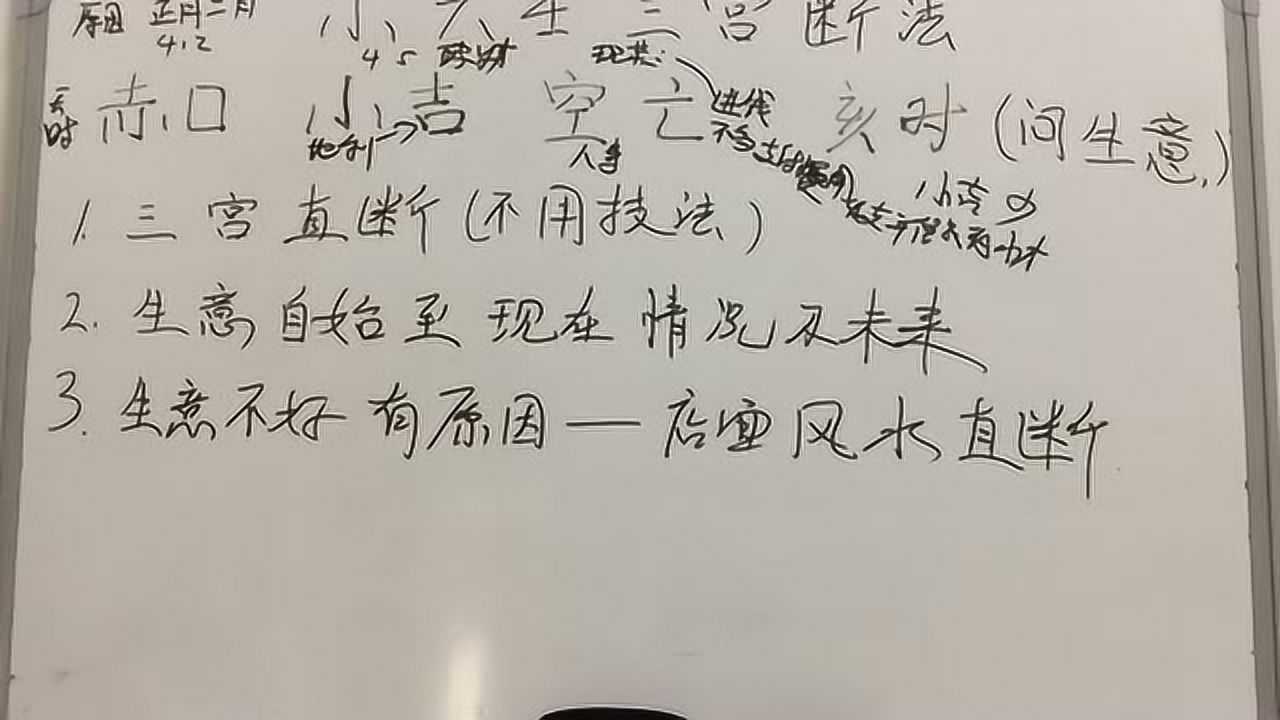 原因 正月二月 小六壬三宫断法
4,2 4 5 现状:
天时 赤口 小吉 空亡 进线 亥时(问生意)
地利 人事 小吉
1. 三宫直断(不用技法)
2. 生意自始至现在情况及未来
3. 生意不好有原因—店面风水直断